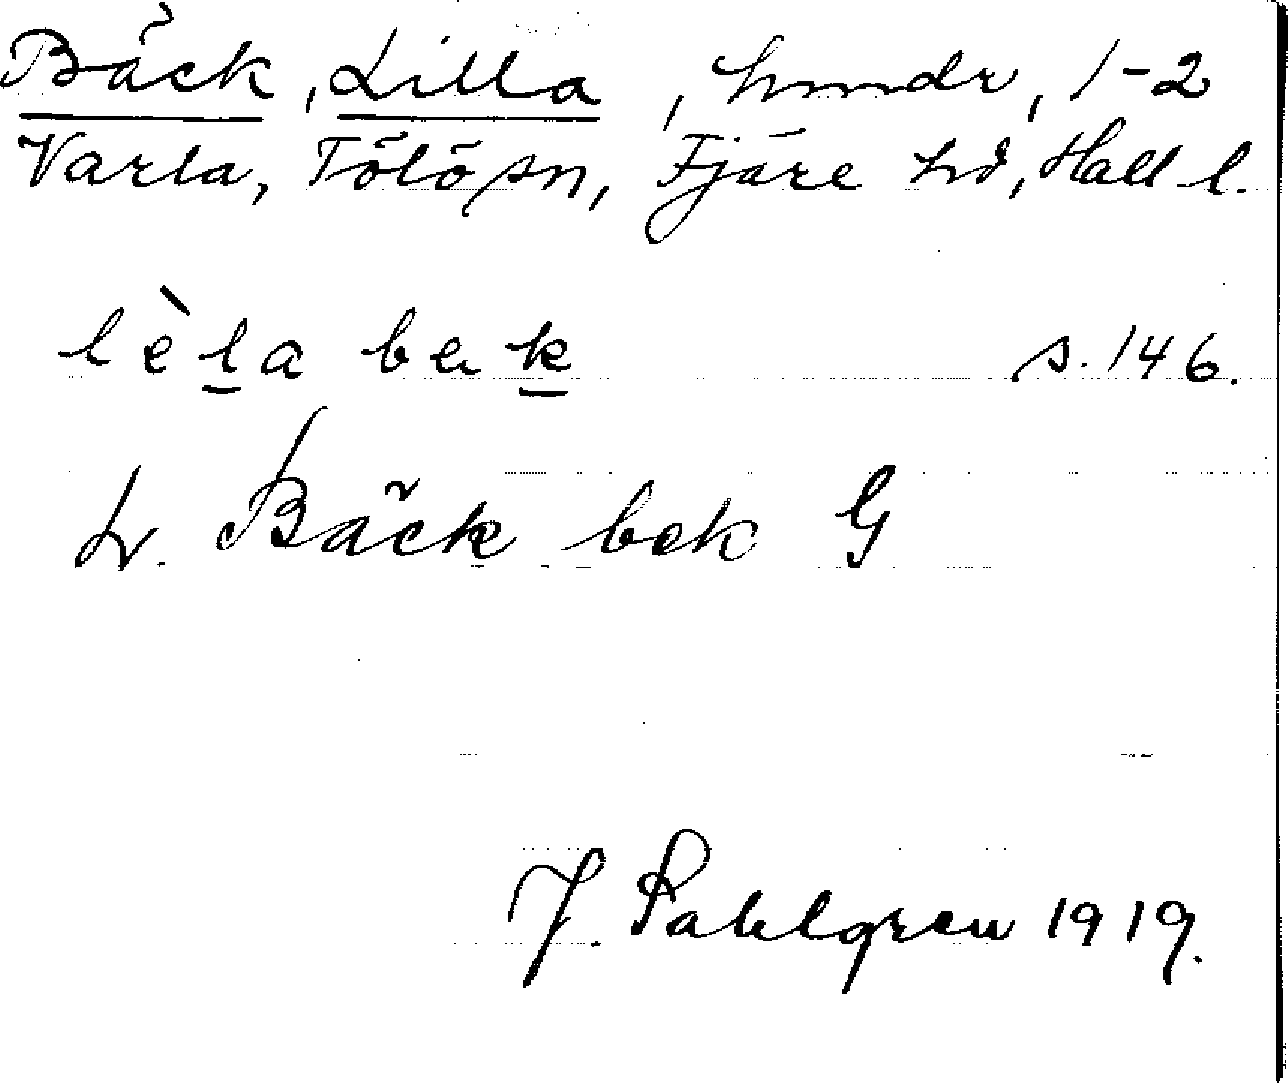 Bäck, Lilla, hmndr, 1-2
Varla, Tölö sn, Fjäre hd, Hall l.
lèla bek s. 146.
L. Bäck bek G
J. Sahlgren 1919.